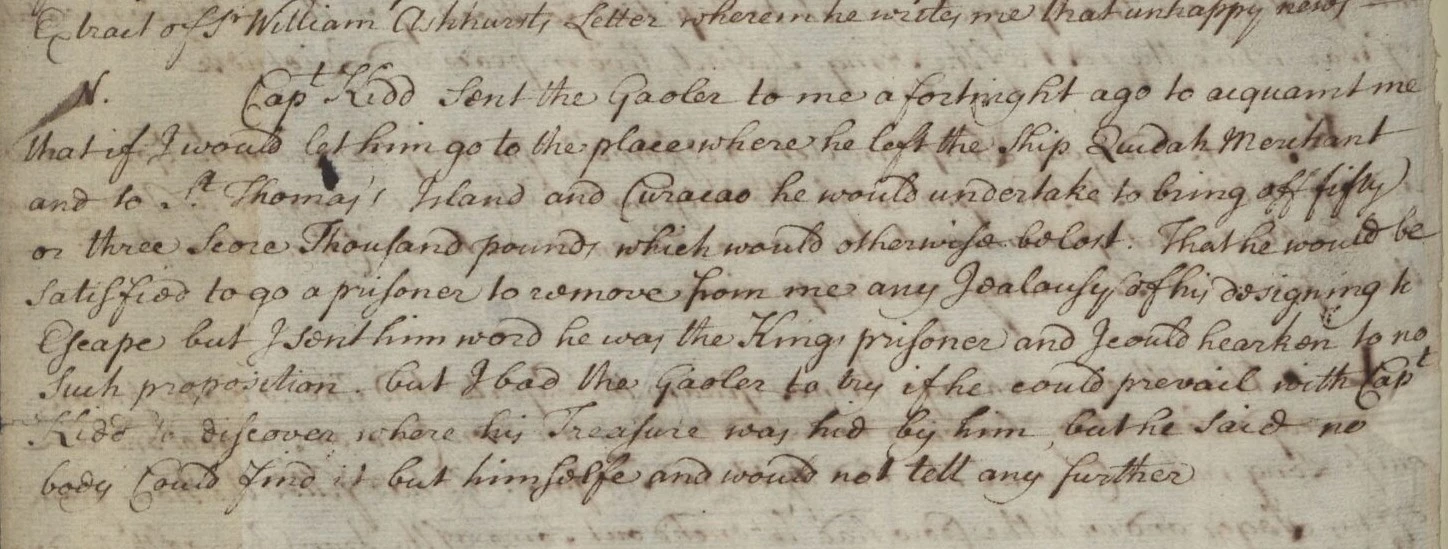 Extract of Sr William Ashhursts Letter wherein he writes me that unhappy news
N. Capt Kidd sent the Gaoler to me a fortnight ago to acquaint me
that if I would let him go to the place where he left the Ship Quidah Merchant
and to St Thomas's Island and Curacao he would undertake to bring off fifty
or three score Thousand pounds which would otherwise be lost. That he would be
satisfied to go a prisoner to remove from me any Jealousy of his designing to
Escape but I sent him word he was the Kings prisoner and I could hearken to no
such proposition. but I bad the Gaoler to try if he could prevail with Capt
Kidd to discover where his Treasure was hid by him, but he said no
body Could find it but himselfe and would not tell any further